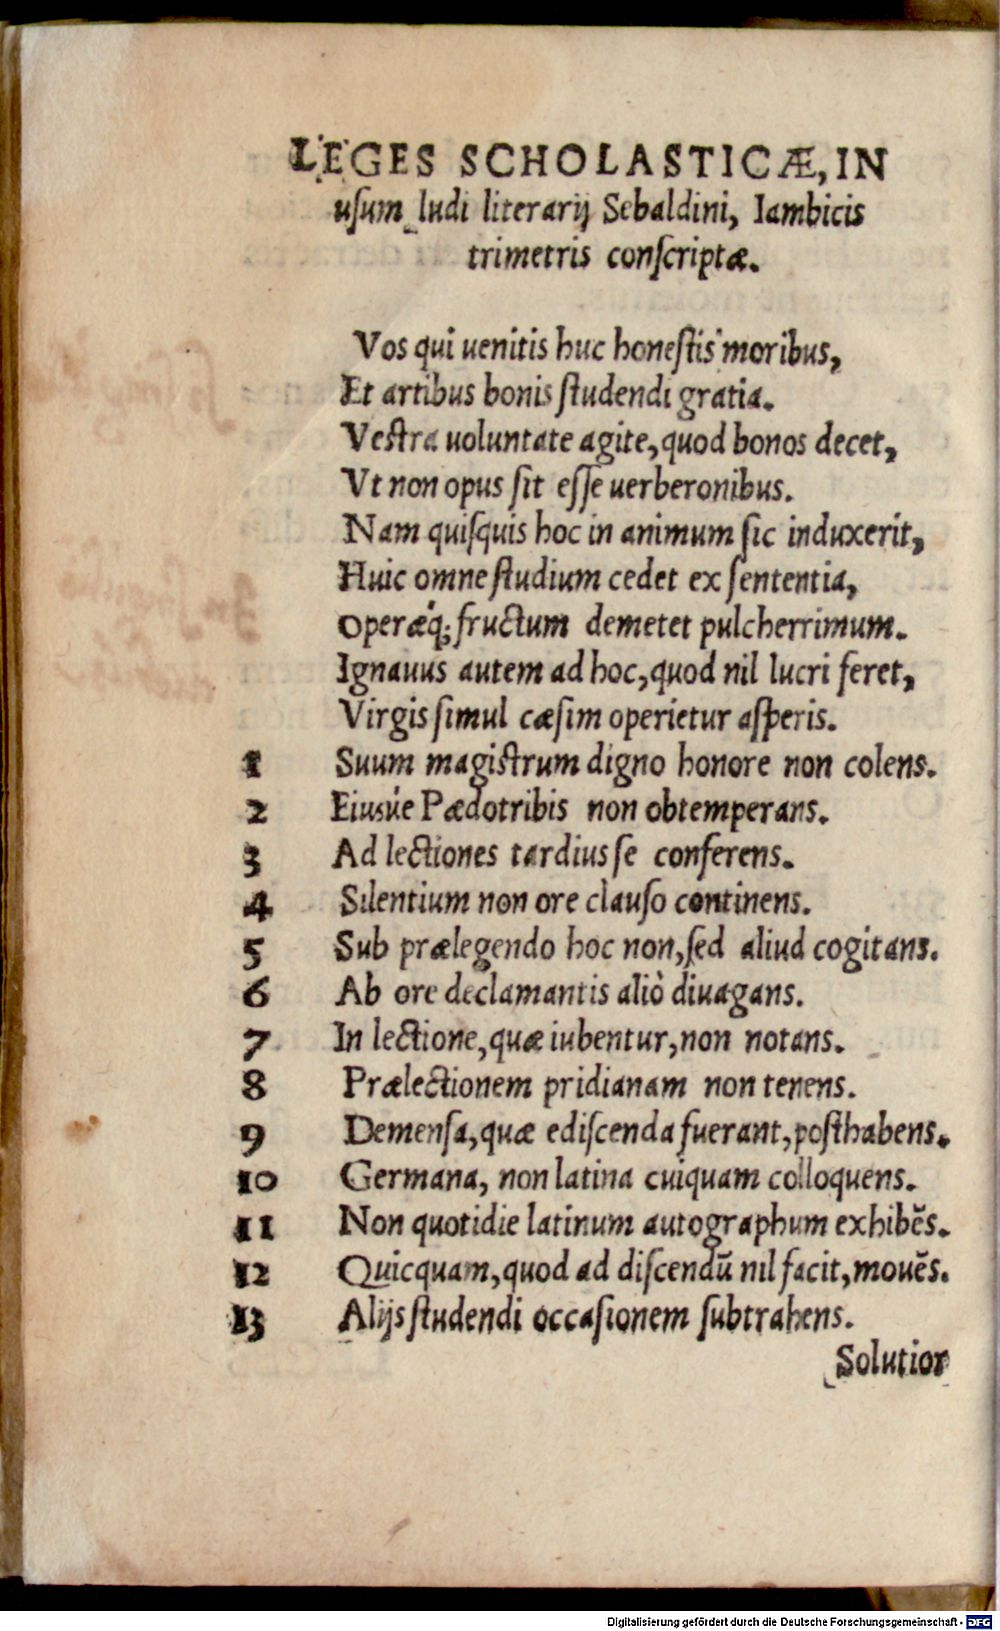 LEGES SCHOLASTICÆ, IN
uſum ludi literarij Sebaldini, Iambicis
trimetris conſcriptæ.
Vos qui uenitis huc honeſtis moribus,
Et artibus bonis ſtudendi gratia.
Veſtra uoluntate agite, quod bonos decet,
Vt non opus ſit eſſe uerberonibus.
Nam quiſquis hoc in animum ſic induxerit,
Huic omne ſtudium cedet ex ſententia,
Operæq́; fructum demetet pulcherrimum.
Ignauus autem ad hoc, quod nil lucri feret,
Virgis ſimul cæſim operietur aſperis.
1 Suum magiſtrum digno honore non colens.
2 Eiusúe Pædotribis non obtemperans.
3 Ad lectiones tardius ſe conferens.
4 Silentium non ore clauſo continens.
5 Sub prælegendo hoc non, ſed aliud cogitans.
6 Ab ore declamantis aliò diuagans.
7 In lectione, quæ iubentur, non notans.
8 Prælectionem pridianam non tenens.
9 Demenſa, quæ ediſcenda fuerant, poſthabens.
10 Germana, non latina cuiquam colloquens.
11 Non quotidie latinum autographum exhibẽs.
12 Quicquam, quod ad diſcendũ nil facit, mouẽs.
13 Alijs ſtudendi occaſionem ſubtrahens.
Solutior
Digitalisierung gefördert durch die Deutsche Forschungsgemeinschaft - DFG